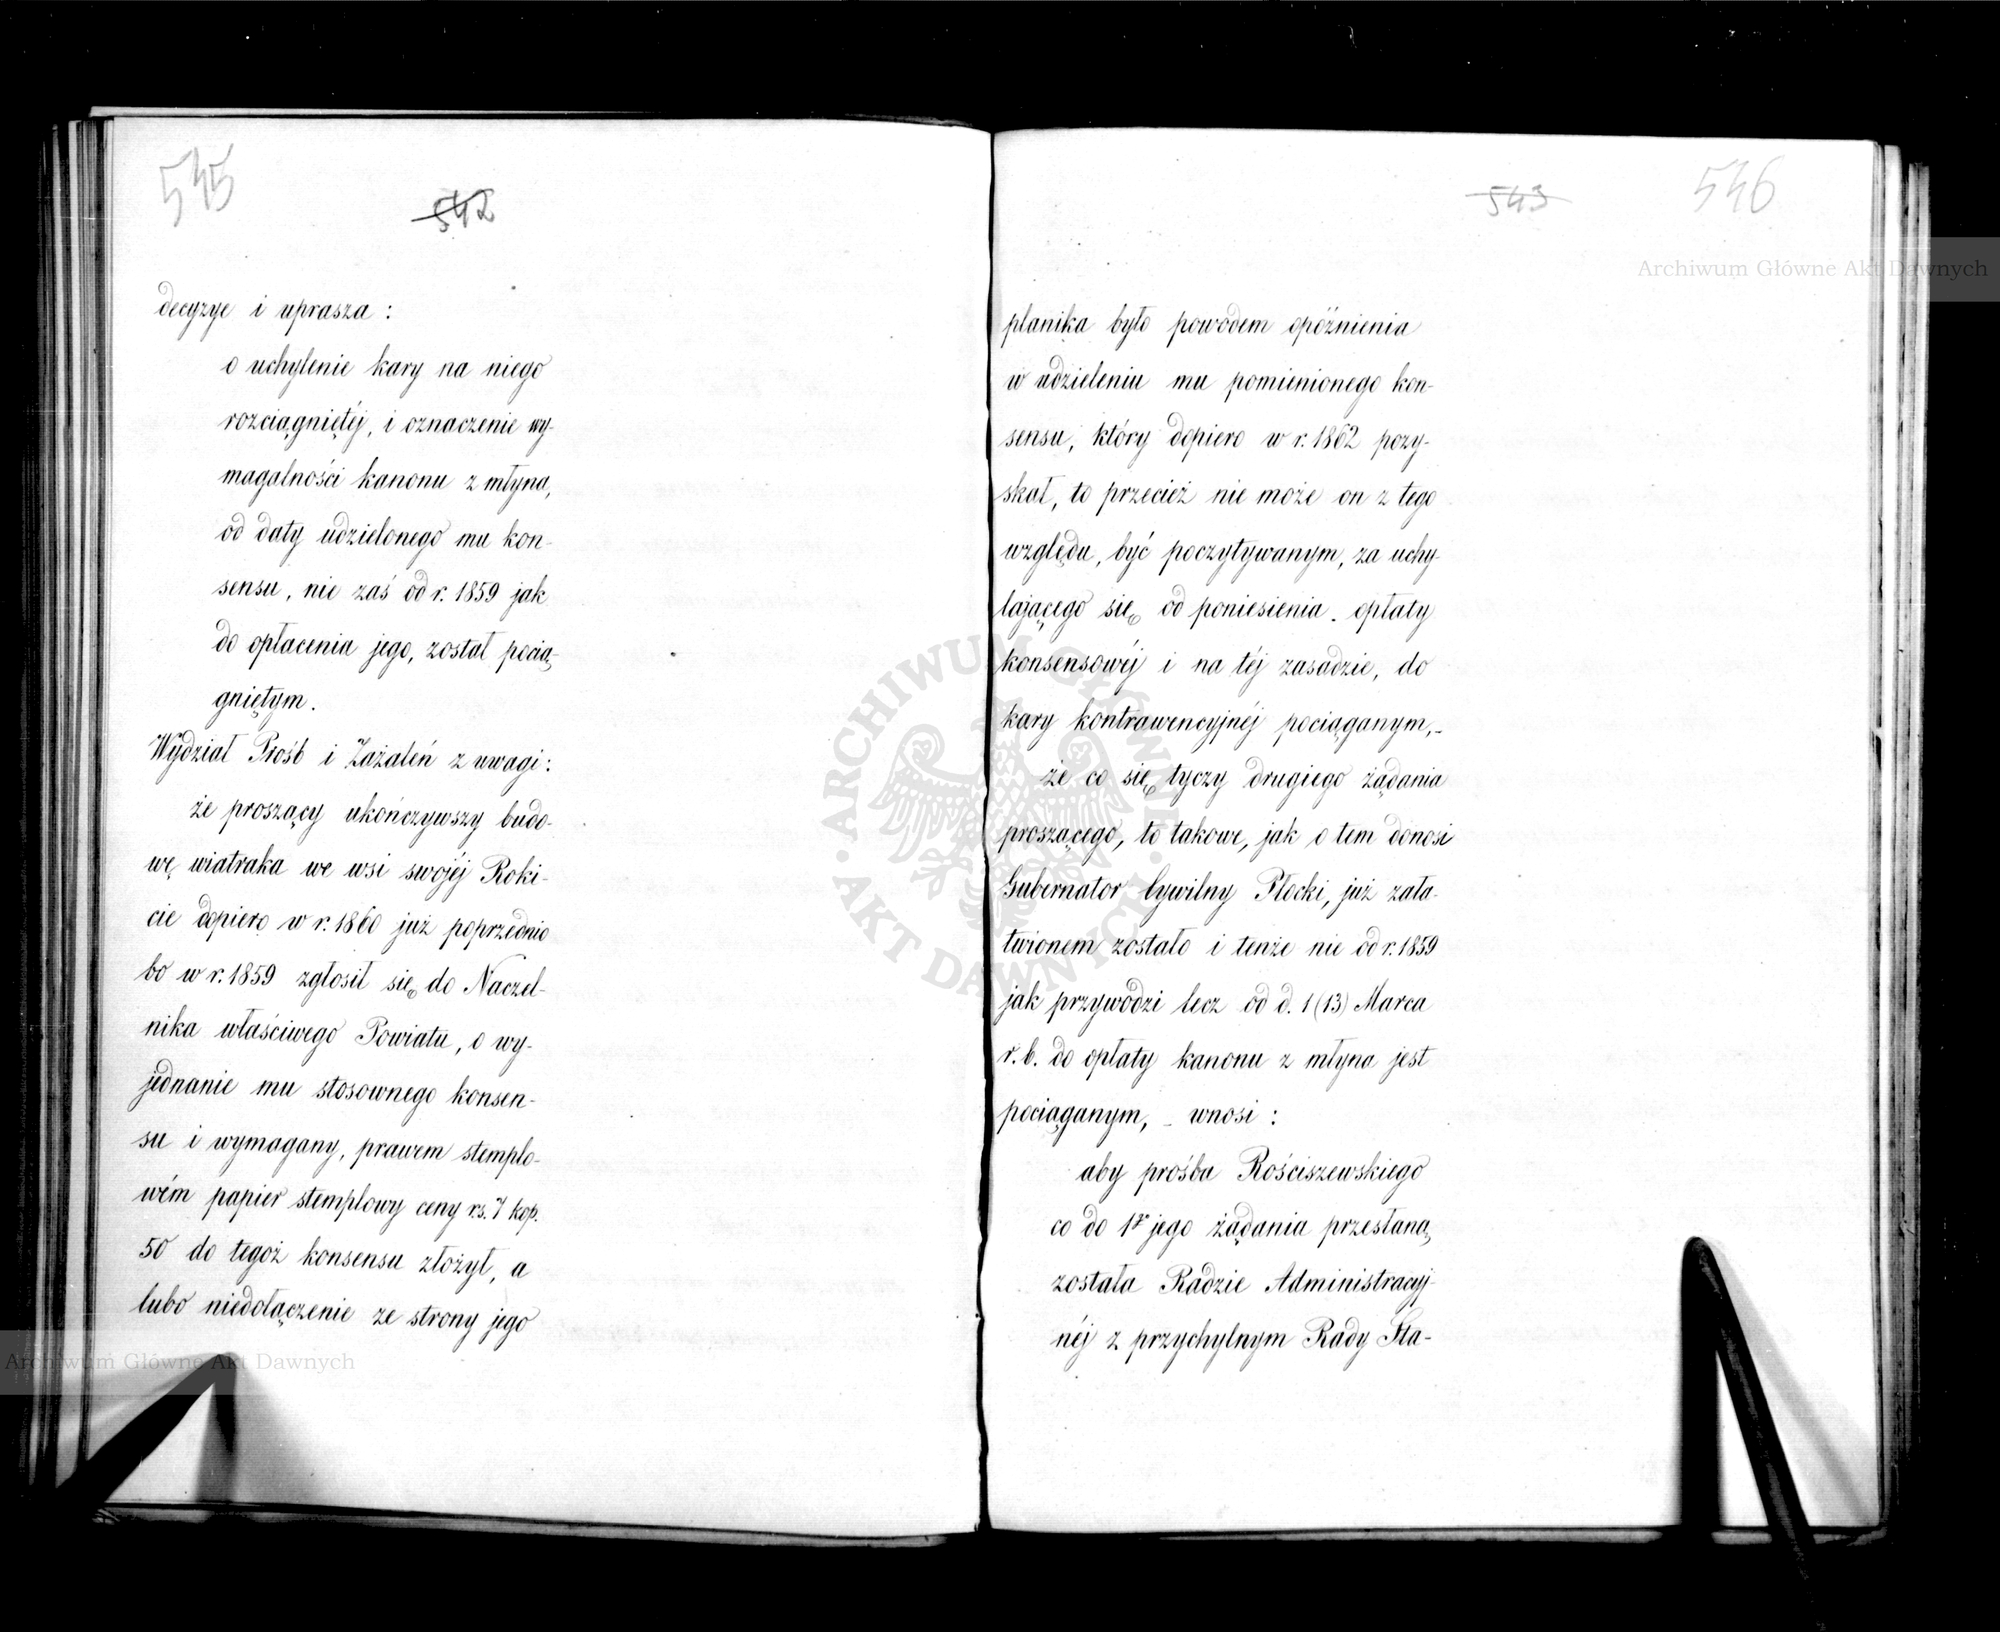 545
542
decyzye i uprasza :
o uchylenie kary na niego
rozciągniętéj, i oznaczenie wy-
magalności kanonu z młyna,
od daty udzielonego mu kon-
sensu, nie zaś od r. 1859 jak
do opłacenia jego, został pocią-
gniętym.
Wydział Próśb i Zażaleń z uwagi :
że proszący ukończywszy budo-
wę wiatraka we wsi swojéj Roki-
cie dopiero w r. 1860 już poprzednio
bo w r. 1859 zgłosił się do Naczel-
nika właściwego Powiatu, o wy-
jednanie mu stosownego konsen-
su i wymagany, prawem stemplo-
wém papier stemplowy ceny rs. 7 kop.
50 do tegoż konsensu złożył, a
lubo niedołączenie ze strony jego
543
546
planika było powodem opóźnienia
w udzieleniu mu pomienionego kon-
sensu, który dopiero w r. 1862 pozy-
skał, to przecież nie może on z tego
względu, być poczytywanym, za uchy-
lającego się od poniesienia . opłaty
konsensowéj i na téj zasadzie, do
kary kontrawencyjnéj pociąganym,-
że co się tyczy drugiego żądania
proszącego, to takowe, jak o tem donosi
Gubernator Cywilny Płocki, już zała-
twionem zostało i tenże nie od r. 1859
jak przywodzi lecz od d. 1 (13) Marca
r. b. do opłaty kanonu z młyna jest
pociąganym, - wnosi :
aby prośba Rościszewskiego
co do 1go jego żądania przesłaną
została Radzie Administracyj-
néj z przychylnym Rady Sta-
Archiwum Główne Akt Dawnych
Archiwum Główne Akt Dawnych
ARCHIWUM GŁÓWNE · AKT DAWNYCH ·